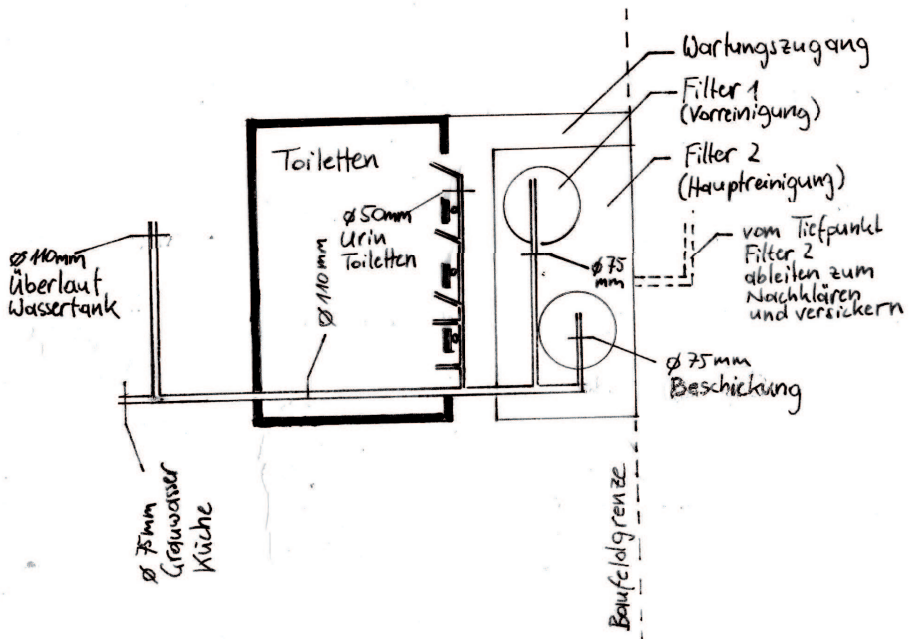 Wartungszugang
Filter 1
(Vorreinigung)
Filter 2
(Hauptreinigung)
vom Tiefpunkt
Filter 2
ableiten zum
Nachklären
und versickern
Toiletten
Ø 50mm
Urin
Toiletten
Ø 110mm
Überlauf
Wassertank
Ø 110mm
Ø 75
mm
Ø 75mm
Beschickung
Ø 75mm
Grauwasser
Küche
Baufeldgrenze